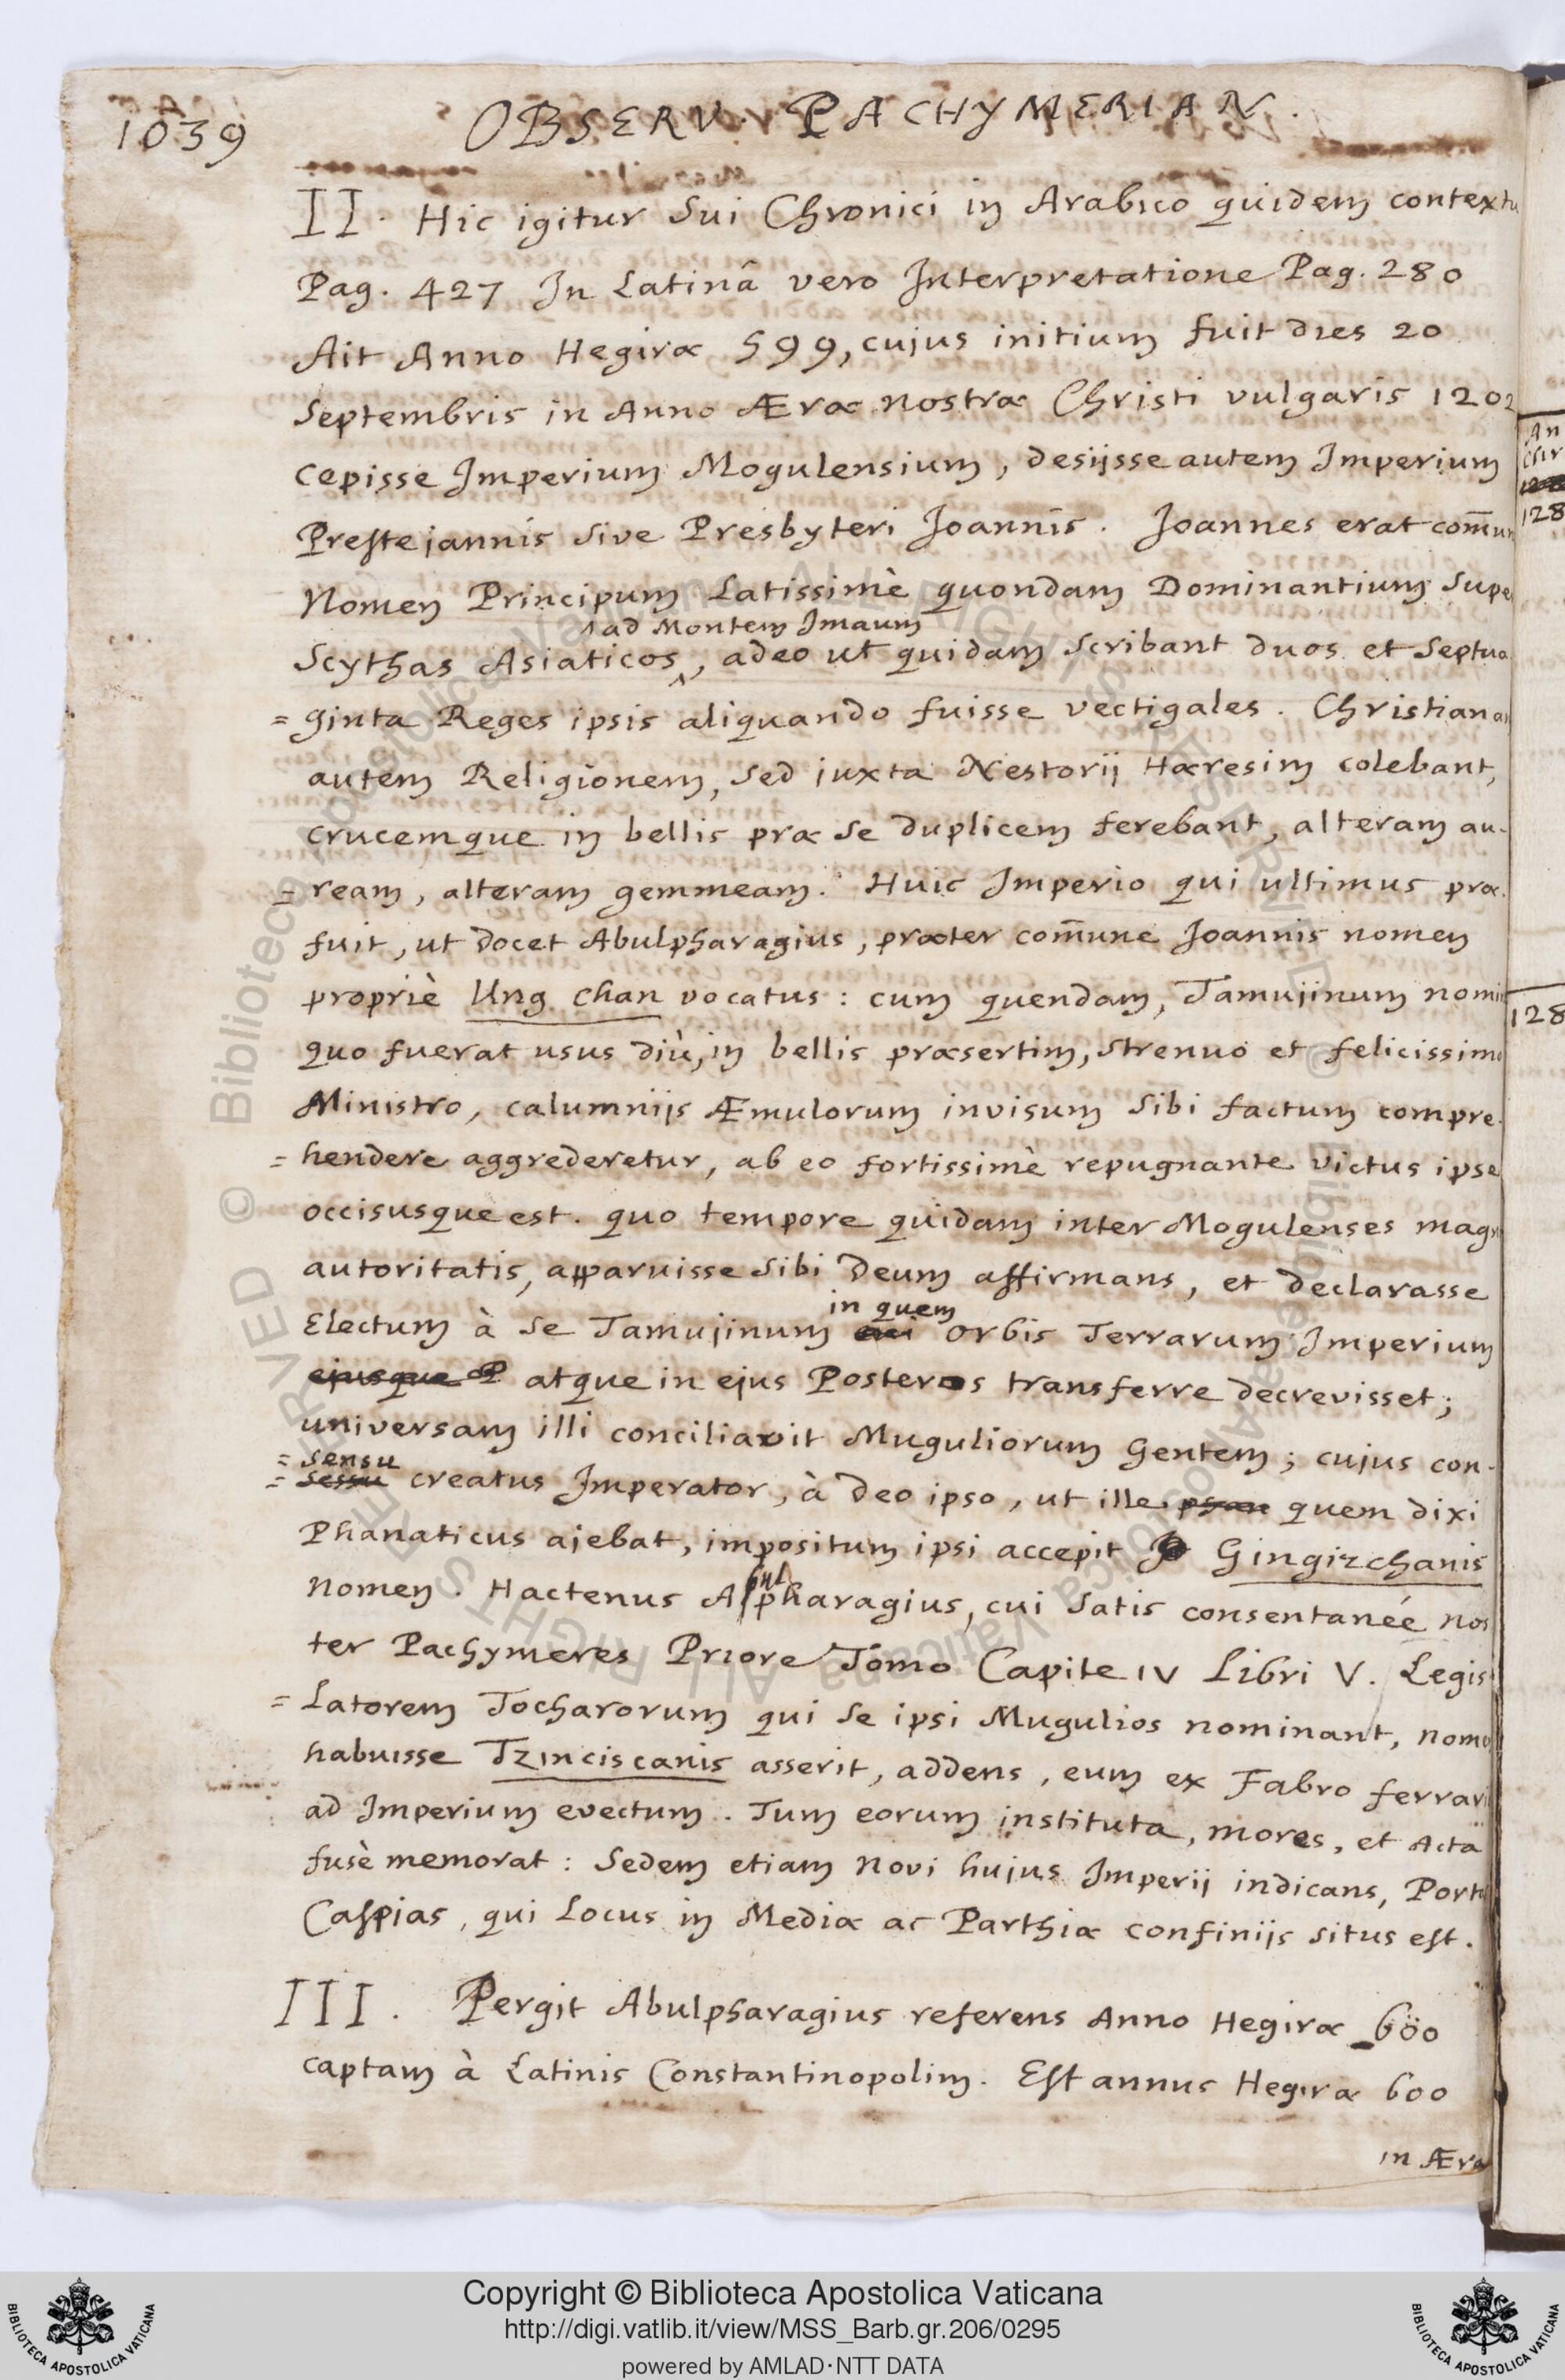 1039
OBSERV. PACHYMERIAN.
II. Hic igitur Sui Chronici in Arabico quidem contextu
Pag. 427 In Latinâ vero Interpretatione Pag. 280
Ait Anno Hegiræ 599, cujus initium fuit dies 20
Septembris in Anno Æræ nostræ Christi vulgaris 1202
cepisse Imperium Mogulensium, desijsse autem Imperium
Prestejannis sive Presbyteri Joannis. Joannes erat com̄un
Nomen Principum Latissimè quondam Dominantium Supe
ad Montem Imaum
Scythas Asiaticos, adeo ut quidam scribant duos et Septua
= ginta Reges ipsis aliquando fuisse vectigales. Christiana
autem Religionem, sed juxta Nestorij Hæresim colebant,
crucemque in bellis præ se duplicem ferebant, alteram au-
= ream, alteram gemmeam. Huic Imperio qui ultimus præ-
fuit, ut docet Abulpharagius, præter com̄une Joannis nomen
propriè Ung Chan vocatus: cum quendam, Tamujinum nomi
quo fuerat usus diù, in bellis præsertim, strenuo et felicissimo
Ministro, calumnijs Æmulorum invisum sibi factum compre-
= hendere aggrederetur, ab eo fortissimè repugnante victus ipse
occisusque est. quo tempore quidam inter Mogulenses mag
autoritatis, apparuisse sibi Deum affirmans, et declarasse
in quem
Electum à se Tamujinum cui Orbis Terrarum Imperium
ejusque P atque in ejus Posteros transferre decrevisset;
universam illi conciliavit Muguliorum Gentem; cujus con-
= sensu
= sessu creatus Imperator, à Deo ipso, ut ille quem dixi
Phanaticus ajebat, impositum ipsi accepit Gingizchanis
nomen. Hactenus Abulpharagius, cui satis consentanée nos
ter Pachymeres Priore Tomo Capite IV Libri V. Legis
= latorem Tocharorum qui se ipsi Mugulios nominant, nome
habuisse Tzinciscanis asserit, addens, eum ex Fabro ferrari
ad Imperium evectum. Tum eorum instituta, mores, et Acta
fusè memorat: Sedem etiam novi hujus Imperij indicans, Port
Caspias, qui Locus in Mediæ ac Parthiæ confinijs situs est.
III. Pergit Abulpharagius referens Anno Hegiræ 600
captam à Latinis Constantinopolim. Est annus Hegiræ 600
in Æra
An
Chr
128
128
© Biblioteca Apostolica Vaticana ALL RIGHTS RESERVED
© Biblioteca Apostolica Vaticana ALL RIGHTS RESERVED
Copyright © Biblioteca Apostolica Vaticana
http://digi.vatlib.it/view/MSS_Barb.gr.206/0295
powered by AMLAD·NTT DATA
BIBLIOTECA APOSTOLICA VATICANA
BIBLIOTECA APOSTOLICA VATICANA